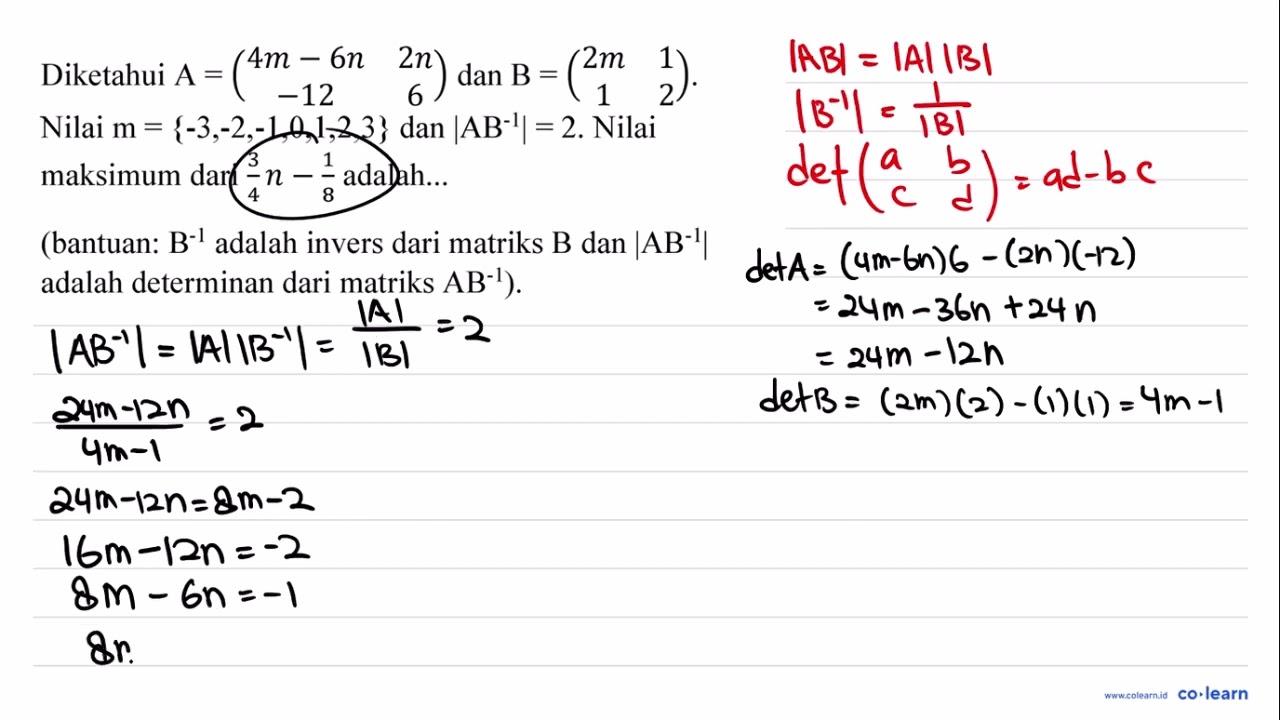 Diketahui A = (4m − 6n 2n −12 6) dan B = (2m 1 1 2).
Nilai m = {-3,-2,-1,0,1,2,3} dan |AB⁻¹| = 2. Nilai
maksimum dari 3/4 n − 1/8 adalah...
(bantuan: B⁻¹ adalah invers dari matriks B dan |AB⁻¹|
adalah determinan dari matriks AB⁻¹).
|AB⁻¹| = |A||B⁻¹| = |A|/|B| = 2
24m-12n/4m-1 = 2
24m-12n = 8m-2
16m-12n = -2
8m - 6n = -1
|AB| = |A||B|
|B⁻¹| = 1/|B|
det(a b c d) = ad-bc
detA = (4m-6n)6 - (2n)(-12)
= 24m - 36n + 24n
= 24m - 12n
detB = (2m)(2) - (1)(1) = 4m-1
www.colearn.id co·learn